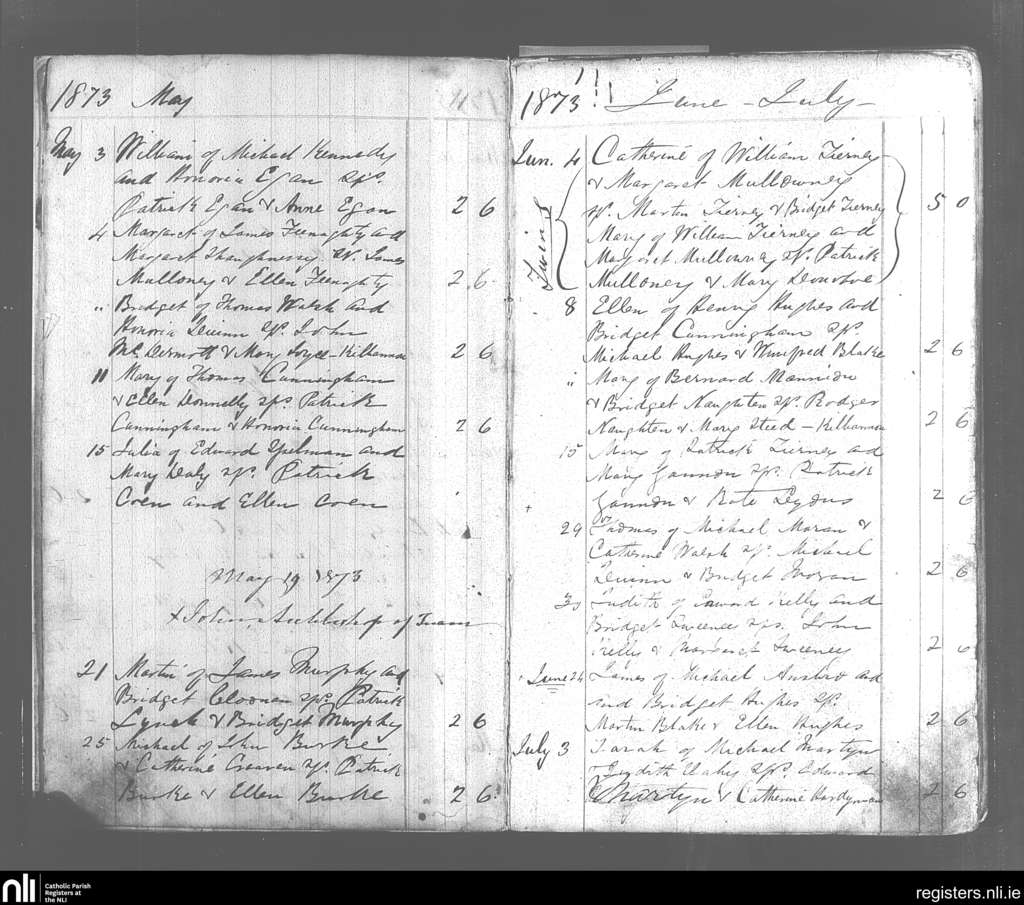 1873 May
May 3 William of Michael Kennedy
and Honoria Egan Sps.
Patrick Egan & Anne Egan 2 6
4 Margaret of James Feenaghty and
Margaret Shaughnessy Sps. James
Mulloney & Ellen Feenaghty 2 6
" Bridget of Thomas Walsh and
Honoria Quinn Sps. John
McDermott & Mary Joyce - Kilbannon 2 6
11 Mary of Thomas Cunningham
& Ellen Donnelly Sps. Patrick
Cunningham & Honoria Cunningham 2 6
15 Julia of Edward Spelman and
Mary Daly Sps. Patrick
Coen and Ellen Coen
May 19 1873
+ John Archbishop of Tuam
21 Martin of James Murphy and
Bridget Cloonan Sps. Patrick
Lynch & Bridget Murphy 2 6
25 Michael of John Burke
& Catherine Greaven Sps. Patrick
Burke & Ellen Burke 2 6
1873 June - July -
Jun. 4 Catherine of William Tierney
& Margaret Mullowney
Sps. Martin Tierney & Bridget Tierney 5 0
Twins
Mary of William Tierney and
Margaret Mullowney Sps. Patrick
Mulloney & Mary
8 Ellen of Henry Hughes and
Bridget Cunningham Sps.
Michael Hughes & Winifred Blake 2 6
" Mary of Bernard Mannion
& Bridget Naughten Sps. Rodger
Naughten & Mary Steed - Kilbannon 2 6
15 Mary of Patrick Tierney and
Mary Gannon Sps. Patrick
Gannon & Kate Lydons 2 6
29 Thomas of Michael Moran &
Catherine Walsh Sps. Michael
Quinn & Bridget Moran 2 6
30 Judith of Edward Kelly and
Bridget Sweeney Sps. John
Kelly & Margaret Sweeney 2 6
June 24 James of Michael and
and Bridget Hughes Sps.
Martin Blake & Ellen Hughes 2 6
July 3 Sarah of Michael Martyn
& Judith Sps. Edward
Martyn & Catherine Hardyman 2 6
nli Catholic Parish
Registers at
the NLI
registers.nli.ie